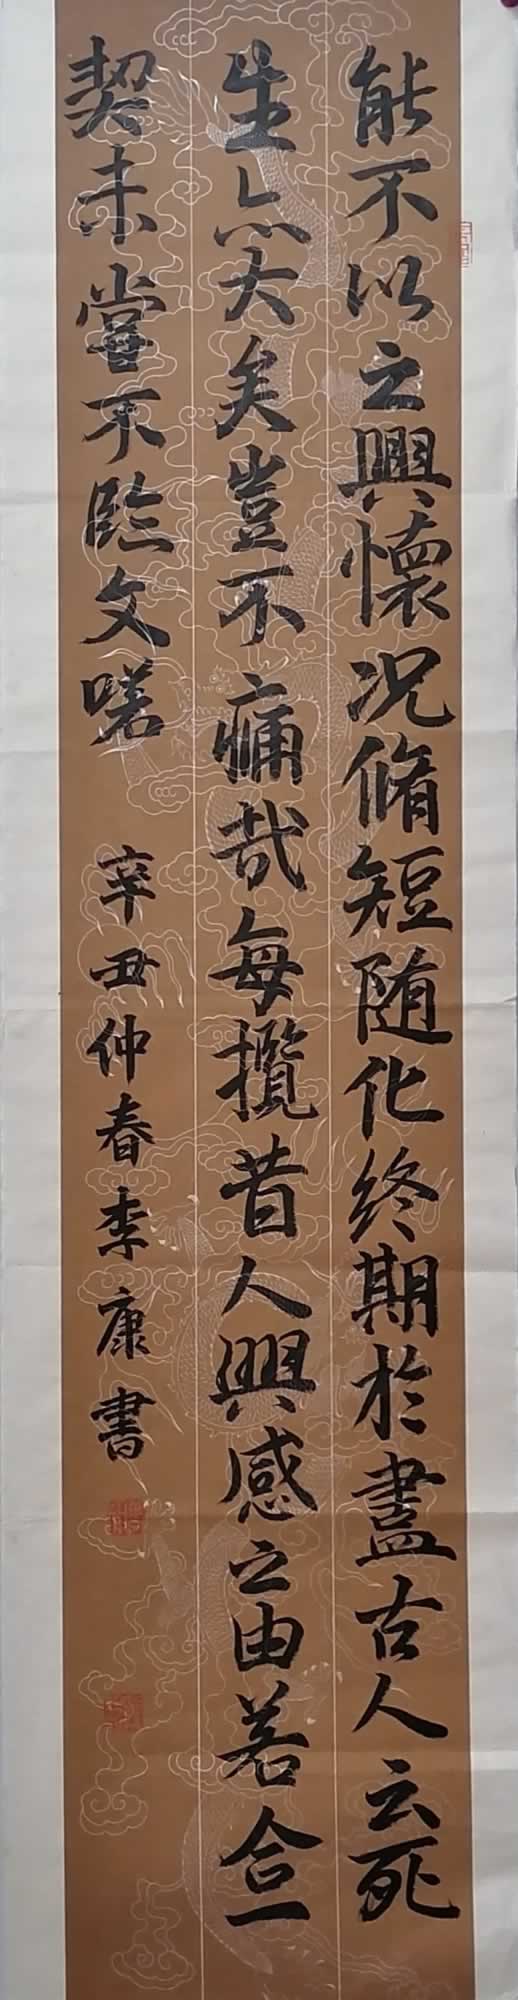 能不以之興懷况脩短随化終期於盡古人云死
生亦大矣豈不痛哉每攬昔人興感之由若合一
契未嘗不臨文嗟
辛丑仲春李康書